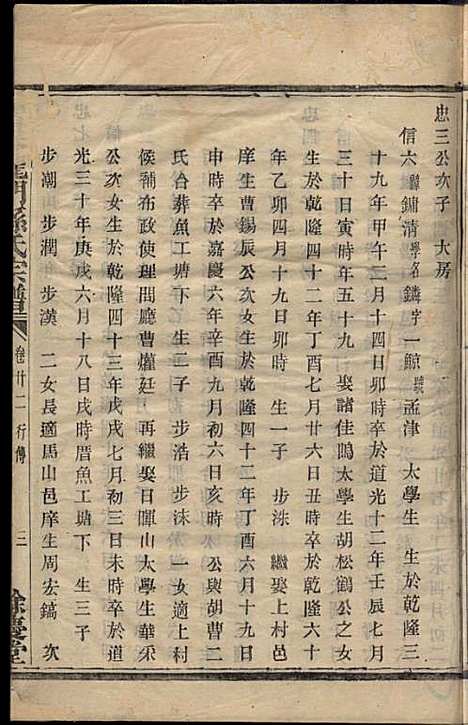 忠三公次子　大房
信六 諱鏞清 學名鏻 字一鯨 號孟津 太學生 生於乾隆三
十九年甲午三月十四日卯時卒於道光十二年壬辰七月
三十日寅時年五十九 娶諸佳鳴太學生胡松鶴公之女
生於乾隆四十二年丁酉七月廿六日丑時卒於乾隆六十
年乙卯四月十九日卯時 生一子 步洙 繼娶上村邑
庠生曹錫辰公次女生於乾隆四十二年丁酉六月十九日
申時卒於嘉慶六年辛酉九月初六日亥時 公與胡曹二
氏合葬魚工塘下 生二子 步浩 步洙 一女適上村
候補布政使理問廳曹燿廷 再繼娶日暉山太學生華釆
公次女生於乾隆四十三年戊戌七月初三日未時卒於道
光三十年庚戌六月十八日戌時厝魚工塘下 生三子
步潮 步潤 步漢 二女長適馬山邑庠生周宏鎬 次
孫氏宗譜 卷廿二 行傳 三 餘慶堂